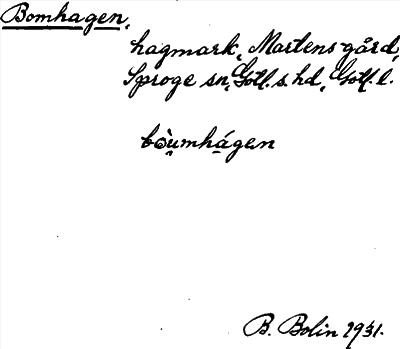 Bomhagen,
hagmark, Martens gård,
Sproge sn, Gotl. s. hd, Gotl. l.
bòu̯mhágen
B. Bolin 1931.